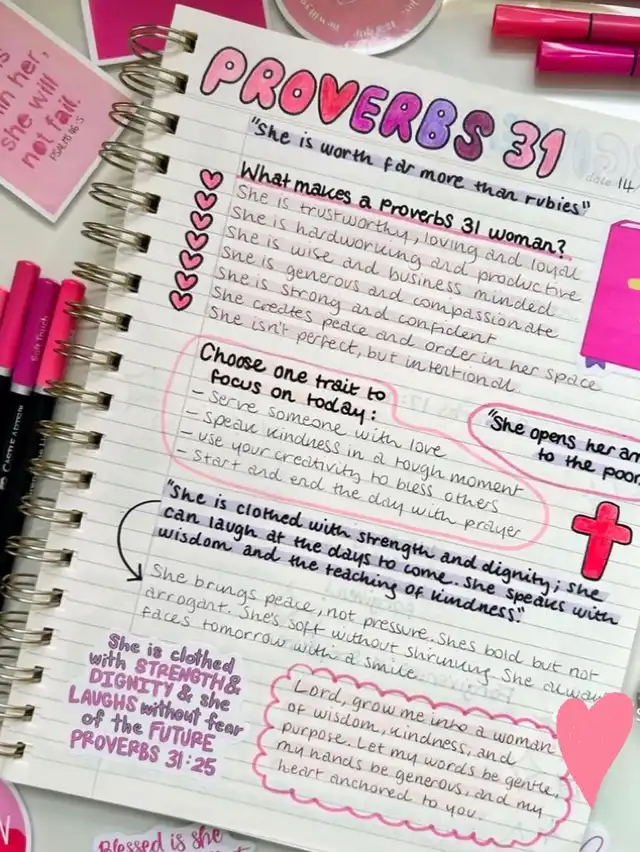 in her,
she will
not fail.
PSALM 46:5
PROVERBS 31
"She is worth far more than rubies"
date 14
What makes a Proverbs 31 woman?
She is trustworthy, loving and loyal
She is hardworking and productive
She is wise and business minded
She is generous and compassionate
She is strong and confident
She creates peace and order in her space
She isn't perfect, but intentional
Choose one trait to
focus on today:
- Serve someone with love
- Speak kindness in a tough moment
- use your creativity to bless others
- Start and end the day with prayer
"She opens her
to the poor
"She is clothed with strength and dignity; she
can laugh at the days to come. She speaks with
wisdom and the teaching of kindness."
She brings peace, not pressure. Shes bold but not
arrogant. She's soft without shrinking. She always
faces tomorrow with a smile.
She is clothed
with STRENGTH &
DIGNITY & she
LAUGHS without fear
of the FUTURE
PROVERBS 31:25
Lord, grow me into a woman
of wisdom, kindness, and
purpose. Let my words be gentle,
my hands be generous, and my
heart anchored to you.
Blessed is she
Soft Touch